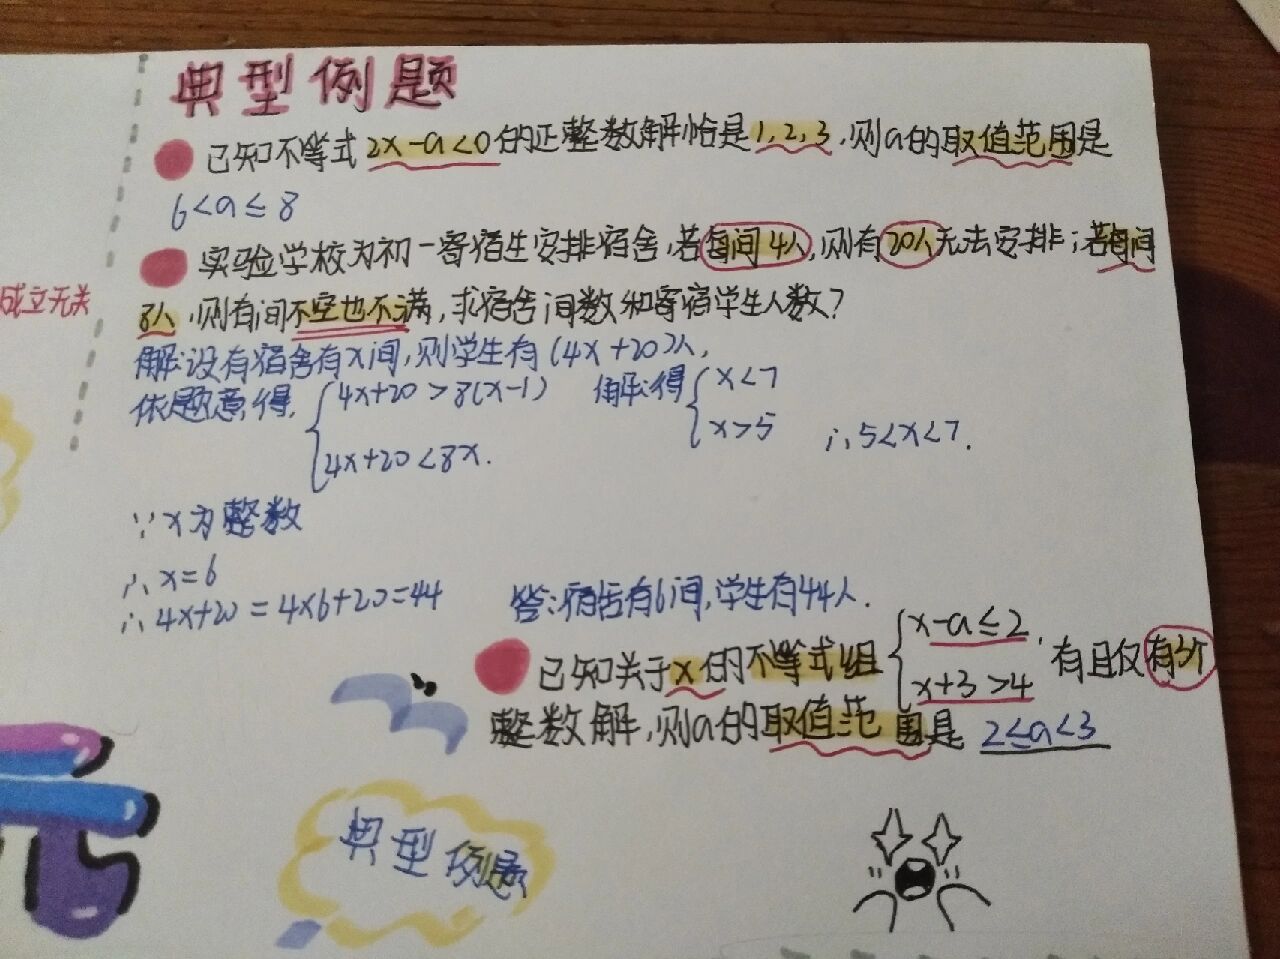 典型例题
已知不等式2x-a<0的正整数解恰是1,2,3,则a的取值范围是
6<a≤8
实验学校为初一寄宿生安排宿舍,若每间4人,则有20人无法安排;若每间
8人,则有间不空也不满,求宿舍间数和寄宿学生人数?
成立无关
解:设有宿舍有x间,则学生有(4x+20)人,
依题意得, { 4x+20>8(x-1) 解得 { x<7
4x+20<8x. x>5 ∴5<x<7.
∵x为整数
∴x=6
∴4x+20=4×6+20=44 答:宿舍有6间,学生有44人.
已知关于x的不等式组 { x-a≤2, x+3>4 有且仅有3个
整数解,则a的取值范围是 2≤a<3
典型例题